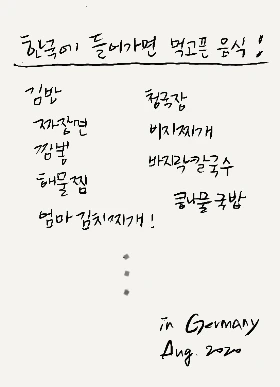 한국에 들어가면 먹고픈 음식!
김밥
짜장면
짬뽕
해물찜
엄마 김치찌개!
청국장
비지찌개
바지락칼국수
콩나물국밥
in Germany
Aug. 2020